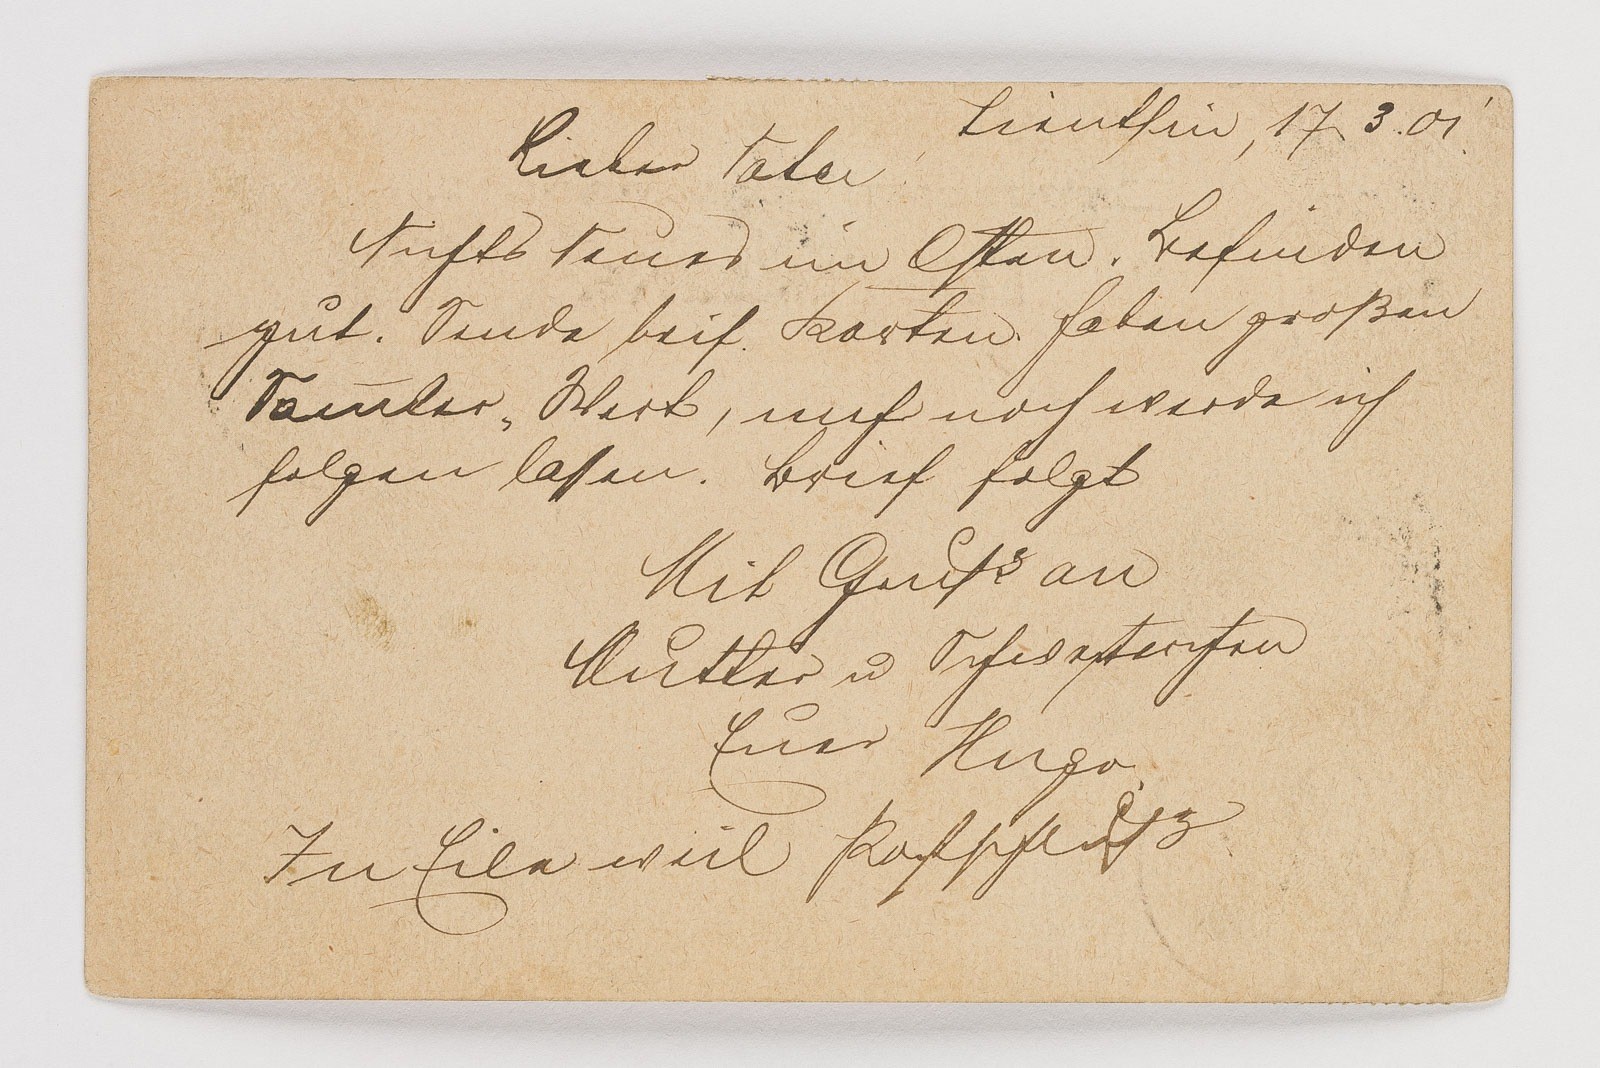 Tientsin, 17. 3. 01.
Lieber Vater!
Nichts Neues im Osten. Befinden
gut. Sende beif. Karten. Haben großen
Sam̅ler-Wert, mehr noch werde ich
folgen lassen. Brief folgt
Mit Gruß an
Mutter u Schwesterchen
Euer Hugo.
In Eile weil Postschluß